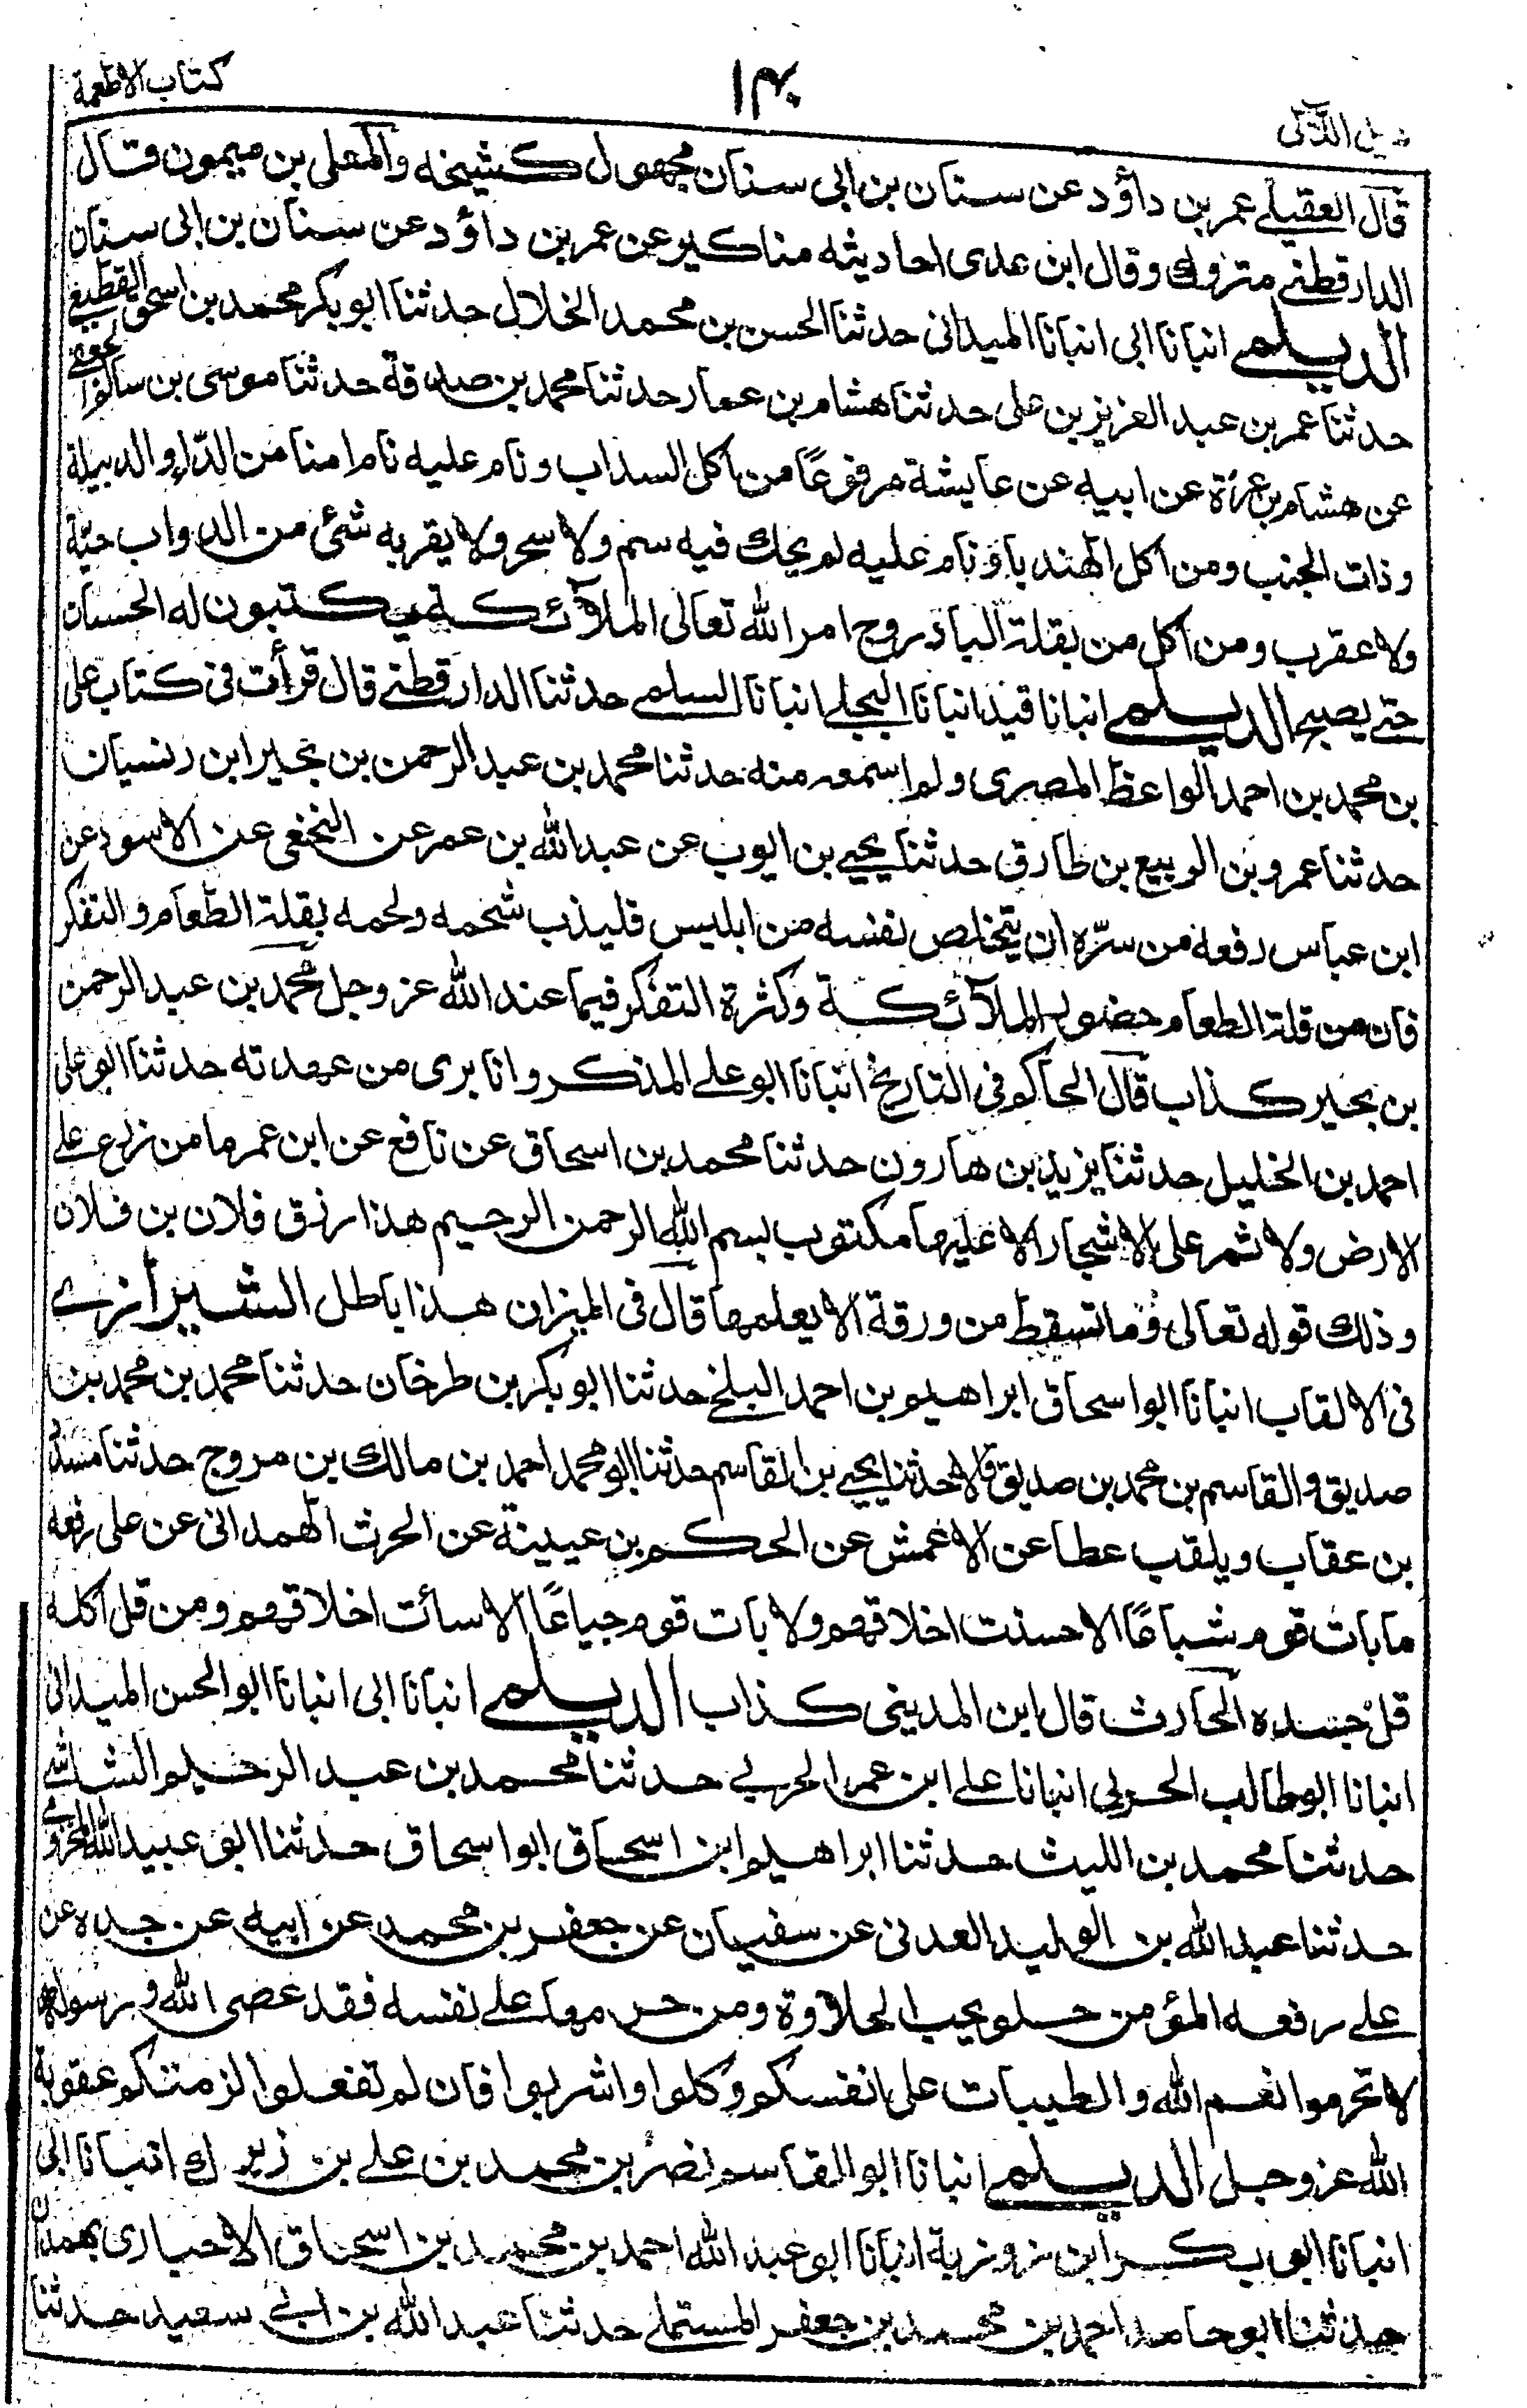 ذيل اللآلى
١٤٠
كتاب الاطعمة
قال العقيلے عمر بن داؤد عن سنان بن ابى سنان مجهول كشيخه والمعلى بن ميمون قال
الدارقطنے متروك وقال ابن عدى احاديثه مناكير عن عمر بن داؤد عن سنان بن ابى سنان
الديلمے انبانا ابى انبانا الميدانى حدثنا الحسن بن محمد الخلال حدثنا ابو بكر محمد بن اسحق القطيعے
حدثنا عمر بن عبد العزيز بن على حدثنا هشام بن عمار حدثنا محمد بن صدقة حدثنا موسى بن سالم
عن هشام بن عروة عن ابيه عن عايشة مرفوعًا من اكل السذاب ونام عليه نام امنا من الدّاء والدبيلة
وذات الجنب ومن اكل الهندباؤ ونام عليه لم يحك فيه سم ولا سحر ولا يقربه شئ من الدواب حيّة
ولا عقرب ومن اكل من بقلة الباذروج امر الله تعالى الملآئكة يكتبون له الحسنات
حتے يصبح الديلمے انبانا قيد انبانا البجلے انبانا السلمے حدثنا الدارقطنے قال قرأت فى كتاب على
بن محمد بن احمد الواعظ المصرى ولم اسمعه منه حدثنا محمد بن عبد الرحمن بن بحير ابن رنسيان
حدثنا عمرو بن الربيع بن طارق حدثنا يحيے بن ايوب عن عبد الله بن عمر عن النخعى عن الاسود عن
ابن عباس رفعه من سرّه ان يتخلص نفسه من ابليس فليذب شحمه ولحمه بقلة الطّعام والتفكر
فان من قلة الطعام حضور الملآئكة وكثرة التفكر فيما عند الله عز وجل محمد بن عبد الرحمن
بن بحير كذاب قال الحاكم فى التاريخ انبانا ابو علے المذكر وانا برى من عهدته حدثنا ابو على
احمد بن الخليل حدثنا يزيد بن هارون حدثنا محمد بن اسحاق عن نافع عن ابن عمر ما من زرع علے
الارض ولا ثمر على الاشجار الا عليها مكتوب بسم الله الرحمن الرحيم هذا رزق فلان بن فلان
وذلك قوله تعالى وما تسقط من ورقة الا يعلمها قال فى الميزان هذا باطل الشيرازے
فى الالقاب انبانا ابو اسحاق ابراهيم بن احمد البلخے حدثنا ابو بكر بن طرخان حدثنا محمد بن محمد بن
صديق والقاسم بن محمد بن صديق قالا حدثنا يحيے بن القاسم حدثنا ابو محمد احمد بن مالك بن مروج حدثنا
بن عقاب ويلقب عطا عن الاعمش عن الحكم بن عيينة عن الحرث الهمدانى عن على رفعه
ما بات قوم شباعًا الا حسنت اخلاقهم ولا بات قوم جياعًا الا سائت اخلاقهم ومن قل اكله
قل جسده الحارث قال ابن المدينى كذاب الديلمے انبانا ابى انبانا ابو الحسن الميدانى
انبانا ابو طالب الحربى انبانا علے ابن عمر الحربے حدثنا محمد بن عبد الرحيم الشاشے
حدثنا محمد بن الليث حدثنا ابراهيم ابن اسحاق ابو اسحاق حدثنا ابو عبيد الله المخزومے
حدثنا عبد الله بن الوليد العدنى عن سفيان عن جعفر بن محمد عن ابيه عن جده عن
علے رفعه المؤمن حلو يحب الحلاوة ومن حرمها علے نفسه فقد عصى الله ورسوله
لا تحرموا نعم الله والطيبات على انفسكم وكلوا واشربوا فان لم تفعلوا لزمتكم عقوبة
الله عز وجل الديلمے انبانا ابو القاسم نصر بن محمد بن علے بن زيرك انبانا ابى
انبانا ابو بكر ابن روزبة انبانا ابو عبد الله احمد بن محمد بن اسحاق الاحبارى بهمدان
حدثنا ابو حامد احمد بن محمد بن جعفر المستملے حدثنا عبد الله بن ابے سعيد حدثنا